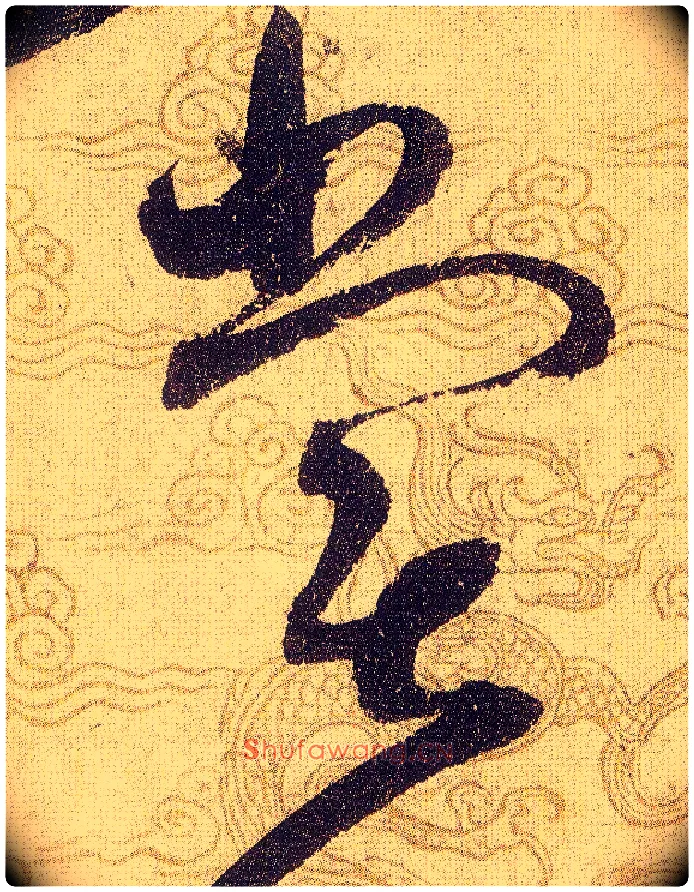 堂
Shufawang.cn